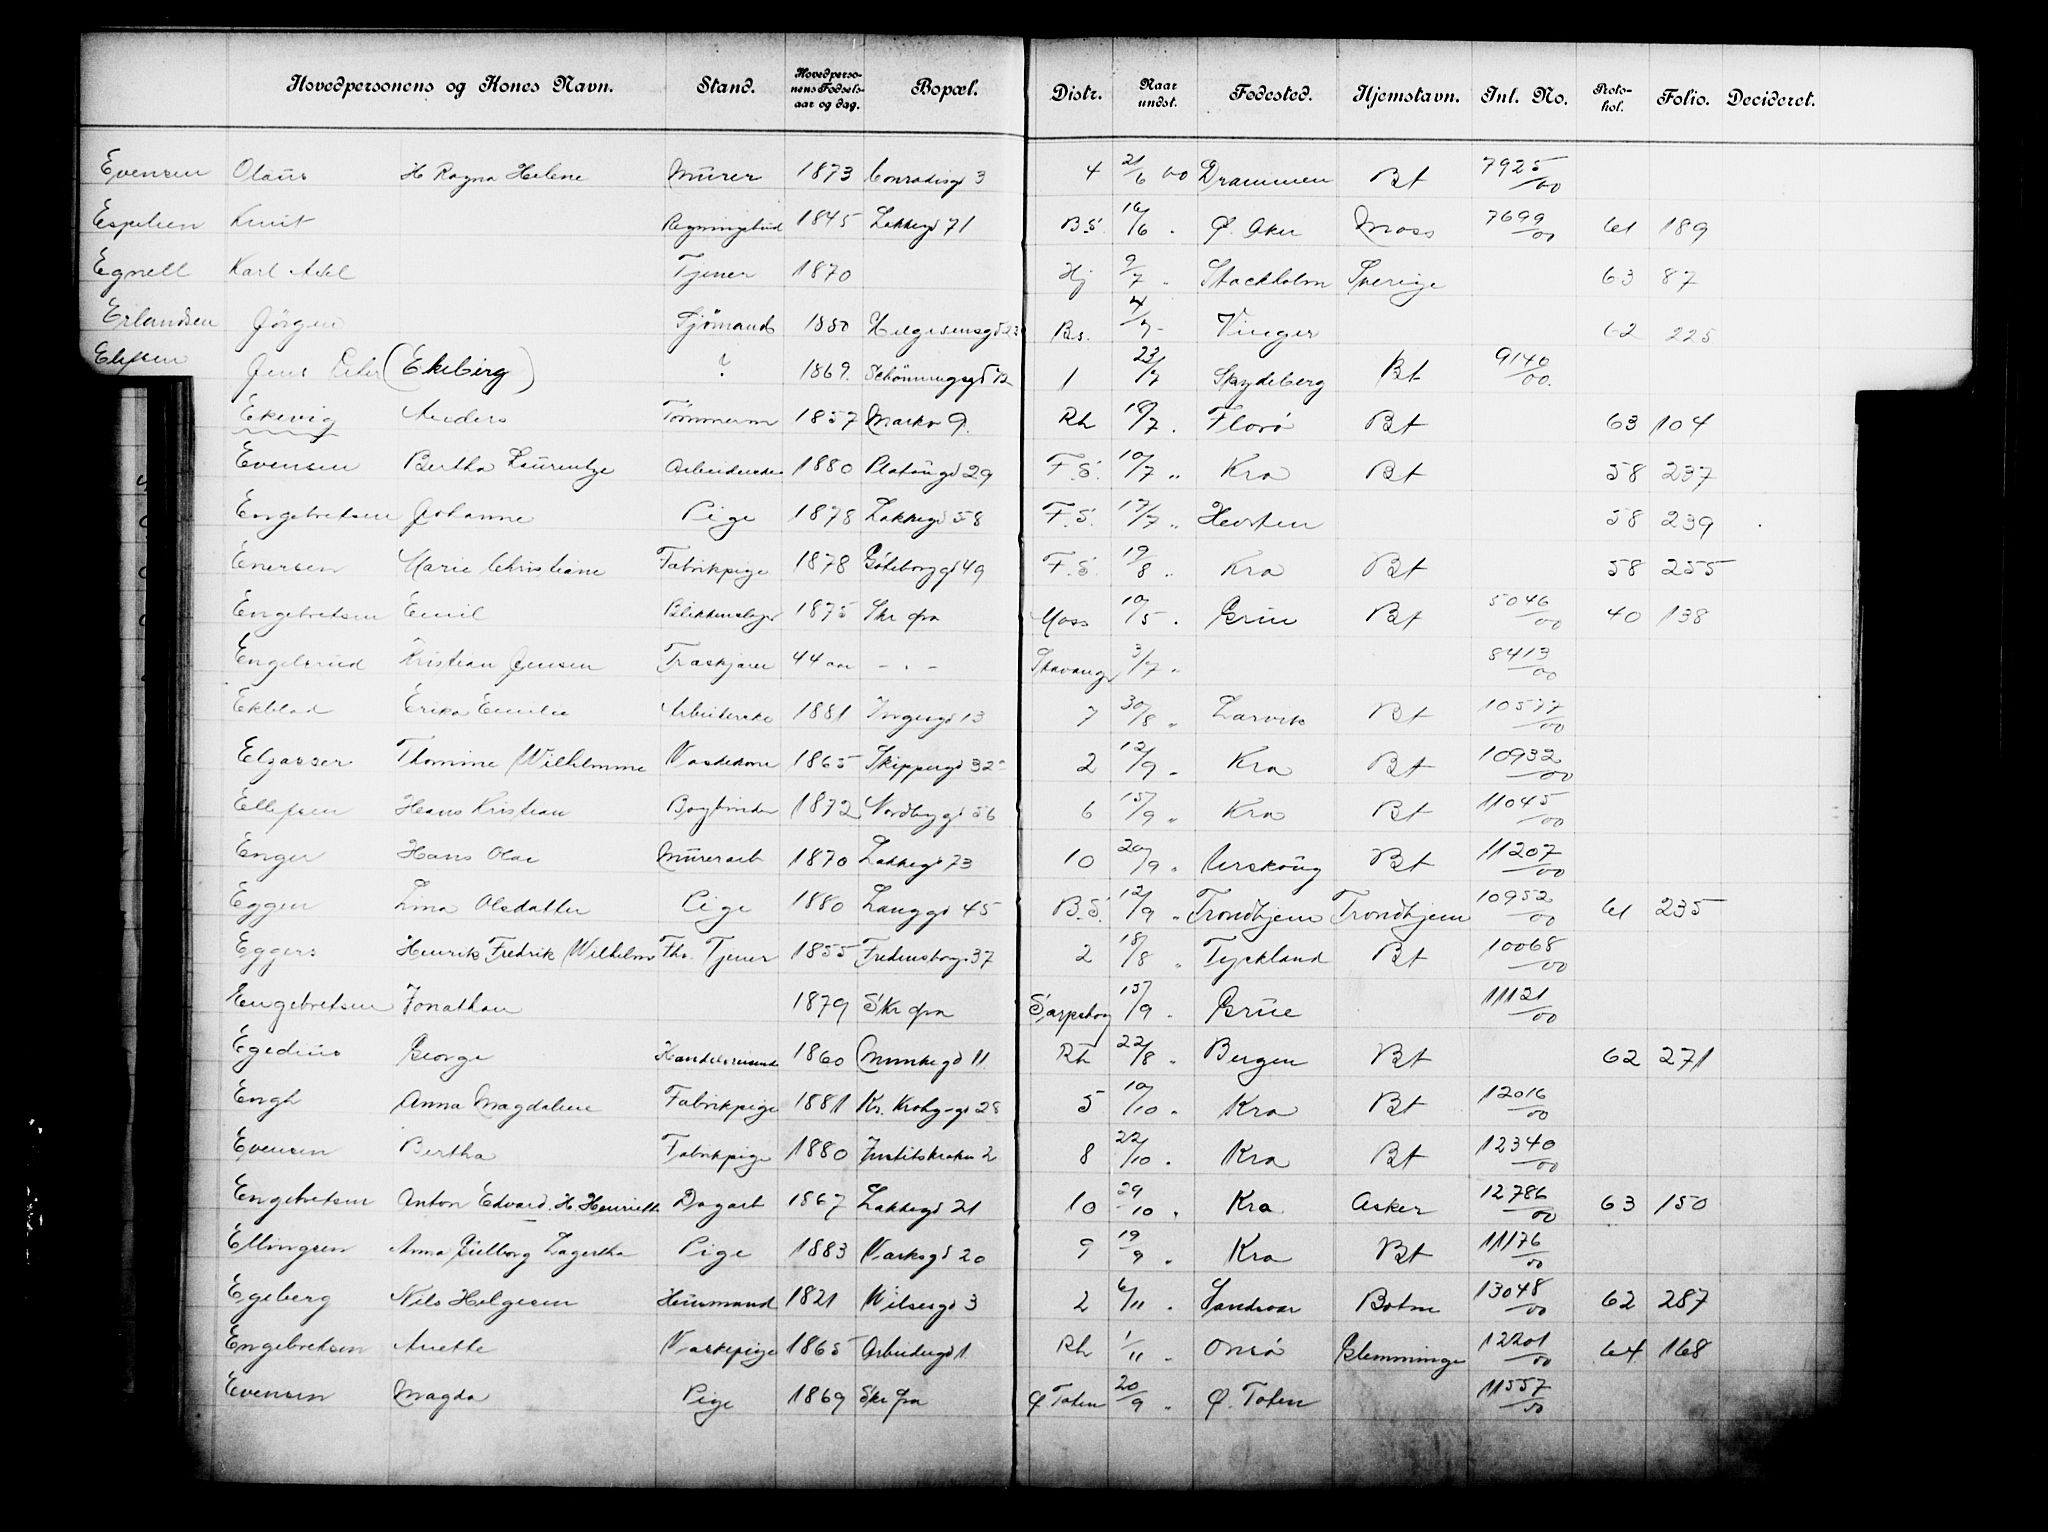 Hovedpersonens og Kones Navn. Stand. Hovedperso-nens Fødsels-aar og dag. Bopæl. Distr. Naar undst. Fødested. Hjemstavn. Inl. No. Proto-kol. Folio. Decideret.
Evensen Olaus H Ragna Helene Murer 1873 Conradisgd 3 4 21/6 00 Drammen Bt 7925/00
Espelien Knut Regningsbud 1845 Lakkegd 71 B.S. 16/6 . Ø. Aker Moss 7699/00 61 189
Egnell Karl Axel Tjener 1870 Hj 9/7 " Stockholm Sverige 63 87
Erlandsen Jörgen Sjömand 1880 Helgesensgd 23 Bs. 4/7 - Vinger 62 225
Elefsen Jens Peder (Ekeberg) ? 1869. Schönningsgd 12 1 23/7 Spydeberg Bt 9140/00.
Ekevig Anders Tömmerm 1857 Markv 9. Rh 18/7 . Florö Bt 63 104
Evensen Bertha Laurentze Arbeiderske 1880 Platousgd 29 F.S. 10/7 " Kra Bt 58 237
Engebretsen Johanne Pige 1878 Lakkegd 58 F.S. 17/7 " Horten 58 239
Enersen Marie Christiane Fabrikpige 1878 Göteborggd 49 F.S. 19/8 " Kra Bt 58 255
Engebretsen Emil Blikkenslager 1875 Skr fra Moss 10/5 . Grue Bt 5046/00 40 138
Engelsrud Kristian Jensen Træskjærer 44 aar - " - Stavanger 3/7 " 8413/00
Ekblad Erika Emilie Arbeiderske 1881 Ingesgd 13 7 30/8 " Larvik Bt 10577/00
Elzasser Thomine Wilhelmine Vaskekone 1865 Skippergd 32 2 12/9 " Kra Bt 10932/00
Ellefsen Hans Kristian Bogbinder 1872 Nordbygd 56 6 15/9 " Kra Bt 11045/00
Enger Hans Olai Murerarb 1870 Lakkegd 73 10 20/9 " Urskoug Bt 11207/00
Eggen Lina Olsdatter Pige 1880 Langgd 45 B.S. 12/9 " Trondhjem Trondhjem 10952/00 61 235
Eggers Henrik Fredrik Wilhelm Fhv. Tjener 1855 Fredensborgv 37 2 18/8 " Tyskland Bt 10068/00
Engebretsen Jonathan 1879 Skr fra Sarpsborg 15/9 . Grue 11121/00
Egedius George Handelsreisende 1860 Munkegd 11 Rh 22/8 " Bergen Bt 62 271
Engh Anna Magdalene Fabrikpige 1881 Kr. Krohgsgd 28 5 10/10 " Kra Bt 12016/00
Evensen Bertha Fabrikpige 1880 2 8 22/10 . Kra Bt 12340/00
Engebretsen Anton Edvard. H. Henriette Dagarb 1867 Lakkegd 21 10 29/10 " Kra Asker 12786/00 63 150
Ellingsen Anna Lagertha Pige 1883 20 9 19/9 " Kra Bt 11176/00
Egeberg Nils Helgesen Husmand 1821 Wilsesgd 3 2 6/11 . Sandsvær Botne 13048/00 62 287
Engebretsen Anette Vaskepige 1865 Arbeidergd 1 Rh 1/11 " Onsö Glemminge 12201/00 64 168
Evensen Magda Pige 1869 Skr fra Ø Toten 20/9 " Ø. Toten 11557/00